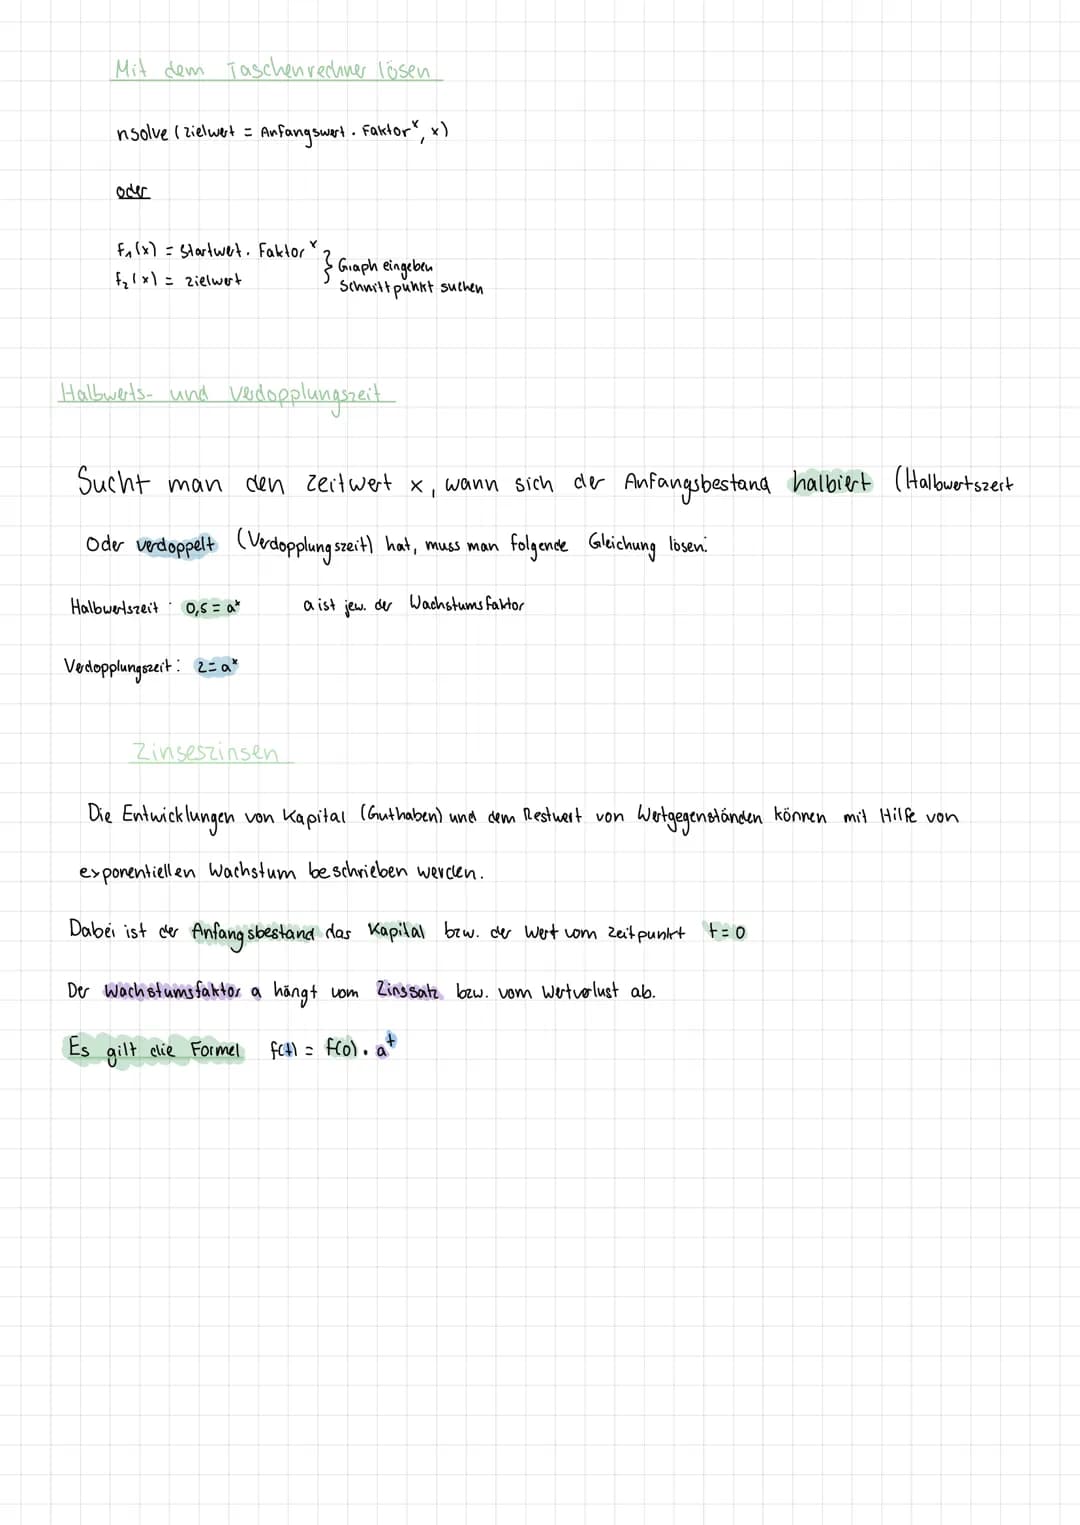 Mit dem Taschenrechner lösen
nsolve ( Zielwert = Anfangswert . Faktorˣ, x)
oder
f₁(x) = Startwert . Faktor ˣ
f₂(x) = Zielwert
} Graph eingeben
Schnittpunkt suchen
Halbwerts- und Verdopplungszeit
Sucht man den Zeitwert x, wann sich der Anfangsbestand halbiert (Halbwertszeit
Oder verdoppelt (Verdopplungszeit) hat, muss man folgende Gleichung lösen:
Halbwertszeit : 0,5 = aˣ a ist jew. der Wachstumsfaktor
Verdopplungszeit : 2 = aˣ
Zinseszinsen
Die Entwicklungen von Kapital (Guthaben) und dem Restwert von Wertgegenständen können mit Hilfe von
exponentiellen Wachstum beschrieben werden.
Dabei ist der Anfangsbestand das Kapital bzw. der Wert vom Zeitpunkt t = 0
Der Wachstumsfaktor a hängt vom Zinssatz bzw. vom Wertverlust ab.
Es gilt die Formel f(t) = f(0) . aᵗ